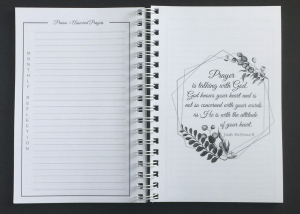 Praise & Answered Prayers
MONTHLY REFLECTION
Prayer
is talking with God.
God knows your heart and is
not so concerned with your words
as He is with the attitude
of your heart.